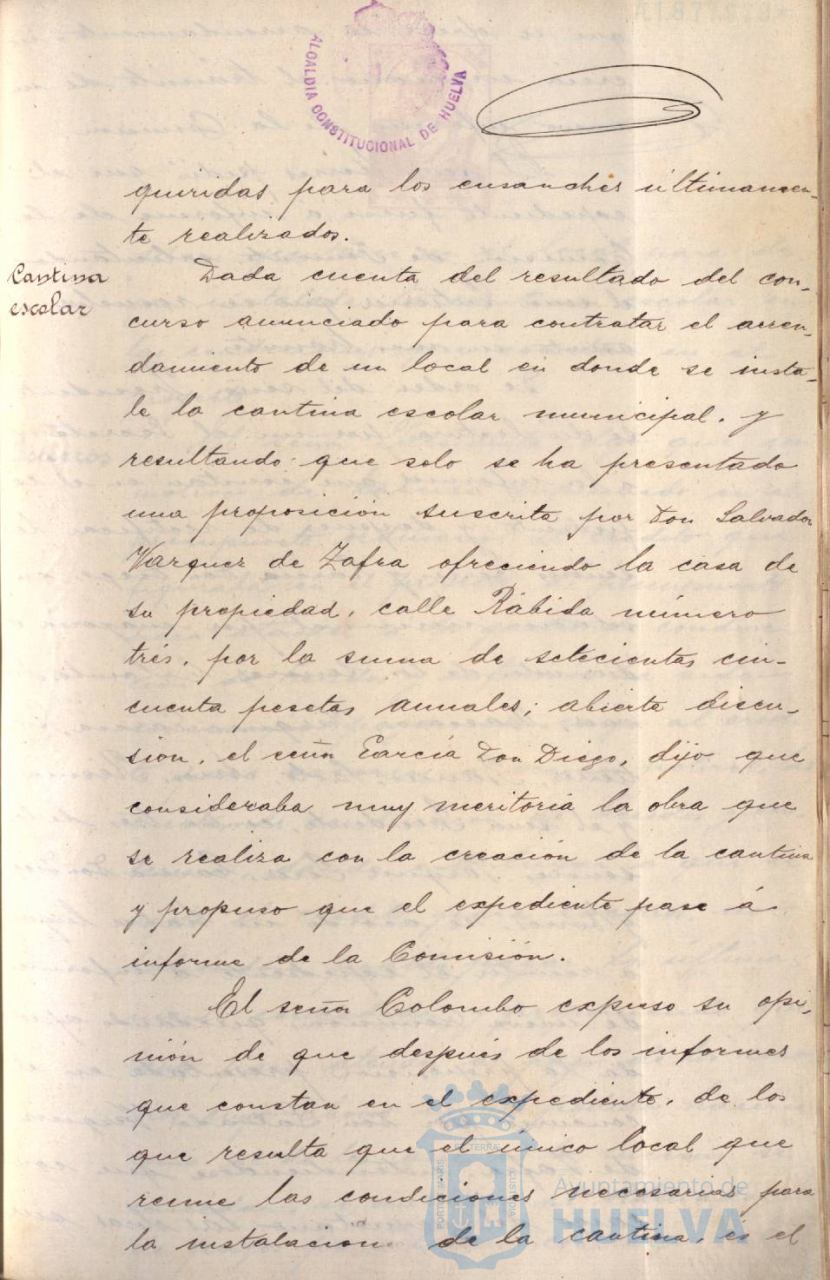 ALCALDIA CONSTITUCIONAL DE HUELVA
queridas para los ensanches últimamen-
te realizados.
Cantina
escolar
Dada cuenta del resultado del con-
curso anunciado para contratar el arren-
damiento de un local en donde se insta-
le la cantina escolar municipal, y
resultando que solo se ha presentado
una proposición suscrita por Don Salvador
Vazquez de Zafra ofreciendo la casa de
su propiedad, calle Rábida número
trés, por la suma de setecientas cin-
cuenta pesetas anuales; abierta discu-
sión, el señor García Don Diego, dijo que
consideraba muy meritoria la obra que
se realiza con la creación de la cantina
y propuso que el expediente pase á
informe de la Comisión.
El señor Colombo expuso su opi-
nión de que después de los informes
que constan en el expediente, de los
que resulta que el único local que
reune las condiciones necesarias para
la instalacion de la cantina, es el
Ayuntamiento de
HUELVA